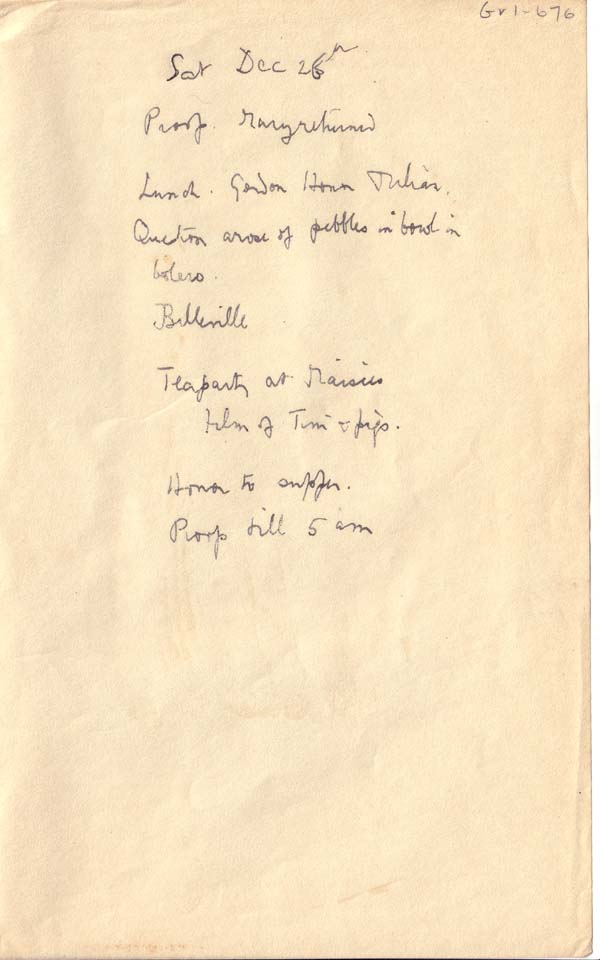 Gr1-676
Sat Dec 26th
Proof. Mary returned
Lunch. Gordon Honor Julian.
Question arose of pebbles in bowl in
bolero.
Belleville
Teaparty at Maisies
Film of Tim & pigs.
Honor to supper.
Proofs till 5 am